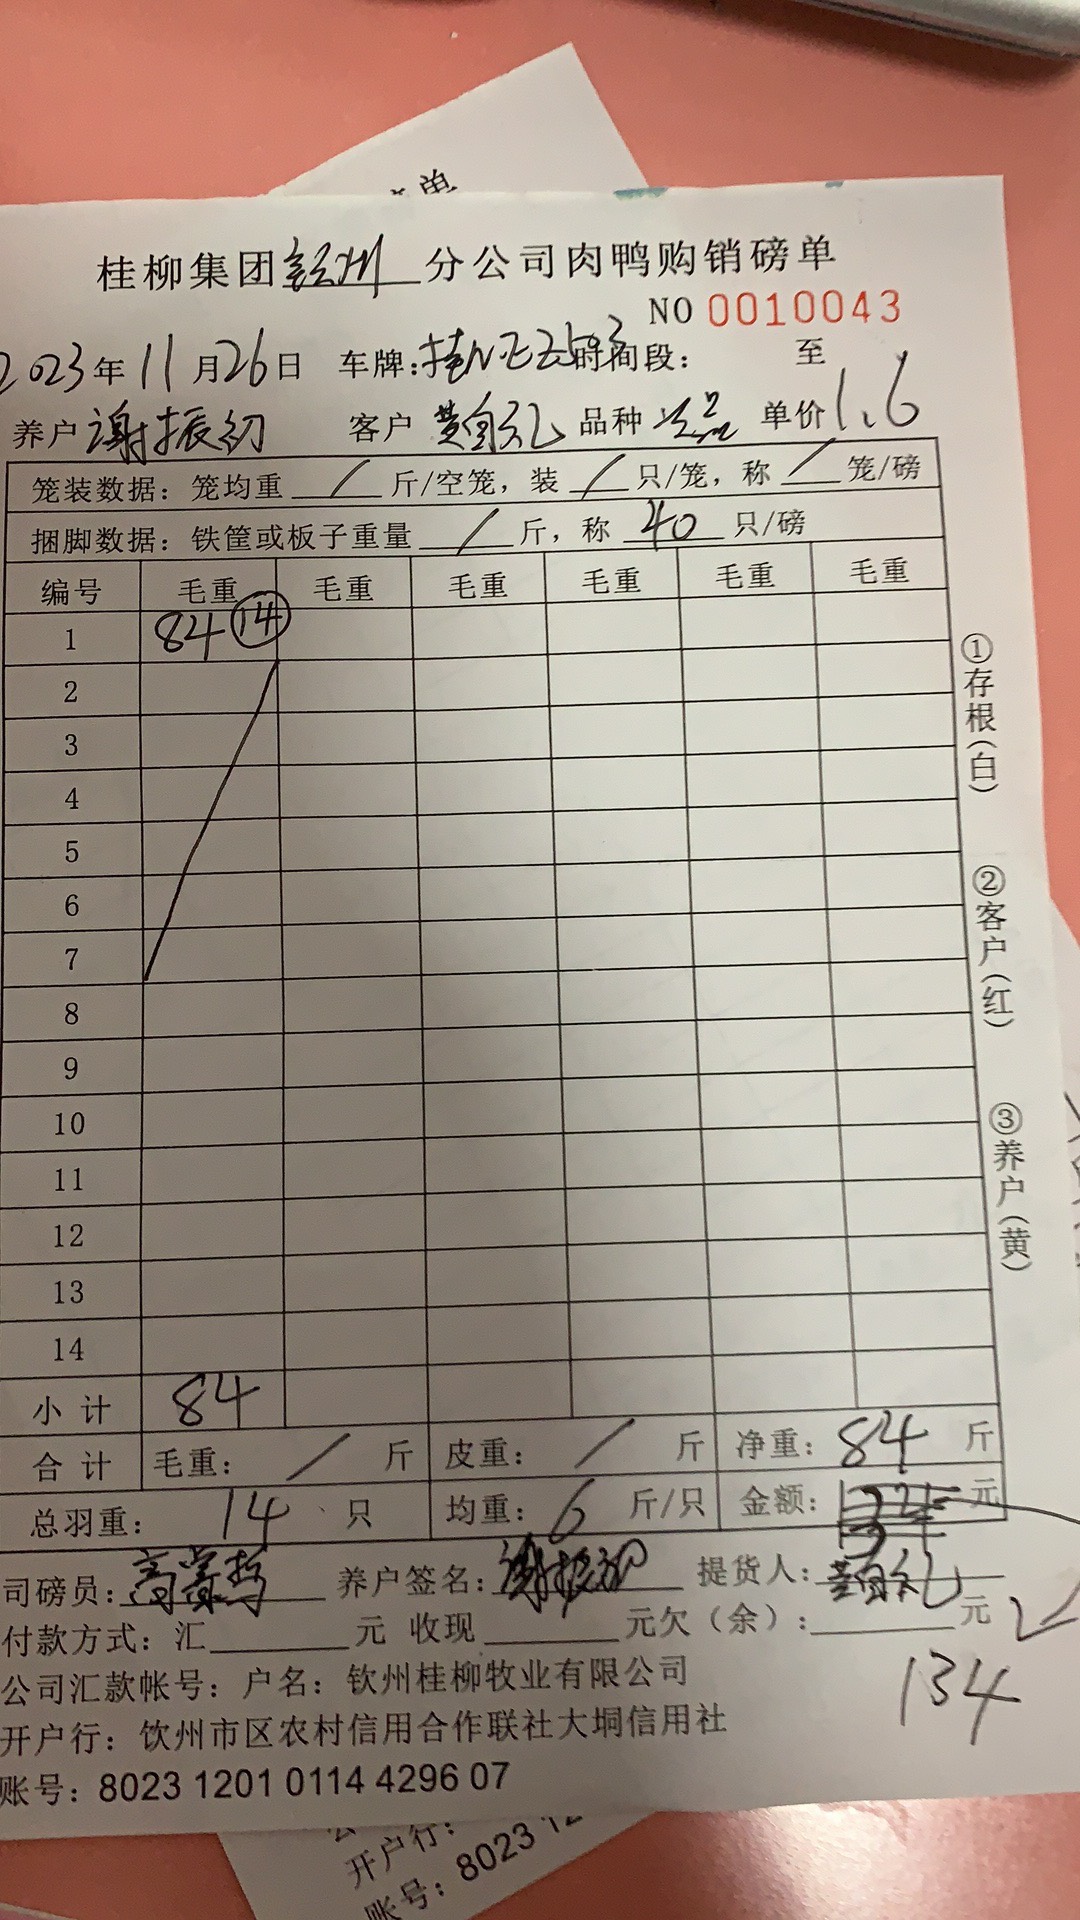 桂柳集团钦州分公司肉鸭购销磅单
NO 0010043
2023年11月26日 车牌: 时间段: 至
养户 谢振初 客户 黄自礼 品种 次品 单价 1.6
笼装数据：笼均重 / 斤/空笼，装 / 只/笼，称 / 笼/磅
捆脚数据：铁筐或板子重量 / 斤，称 40 只/磅
编号 毛重 毛重 毛重 毛重 毛重 毛重
1 84 14
2
3
4
5
6
7
8
9
10
11
12
13
14
小计 84
合计 毛重： / 斤 皮重： / 斤 净重：84 斤
总羽重： 14 只 均重：6 斤/只 金额： 元
司磅员： 养户签名：谢振初 提货人：黄自礼
付款方式：汇 元 收现 元欠（余）: 元
134
公司汇款帐号：户名：钦州桂柳牧业有限公司
开户行：饮州市区农村信用合作联社大垌信用社
账号：8023 1201 0114 4296 07
①存根(白)
②客户(红)
③养户(黄)
单
开户行:
账号: 8023 12